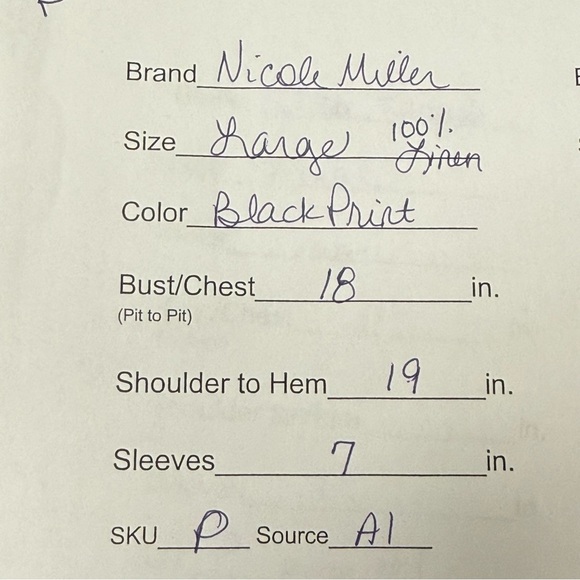 Brand Nicole Miller
Size Large 100% Linen
Color Black Print
Bust/Chest 18 in.
(Pit to Pit)
Shoulder to Hem 19 in.
Sleeves 7 in.
SKU P Source A1